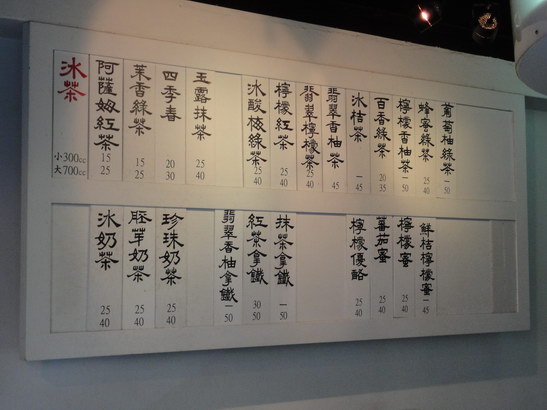 冰茶
小300cc
大700cc
阿薩姆紅茶
15
25
茉香綠茶
15
25
四季春
20
30
玉露抹茶
25
40
冰酸梅綠茶
25
40
檸檬紅茶
25
40
翡翠檸檬茶
25
40
翡翠香柚茶
—
45
冰桔茶
—
45
百香綠茶
20
35
檸檬香柚茶
—
50
蜂蜜綠茶
25
40
葡萄柚綠茶
—
50
冰奶茶
25
40
胚芽奶茶
25
40
珍珠奶茶
25
40
翡翠香柚拿鐵
—
50
紅茶拿鐵
30
50
抹茶拿鐵
—
50
檸檬優酪
25
40
蕃茄蜜
25
40
檸檬蜜
25
40
鮮桔檸檬蜜
—
45